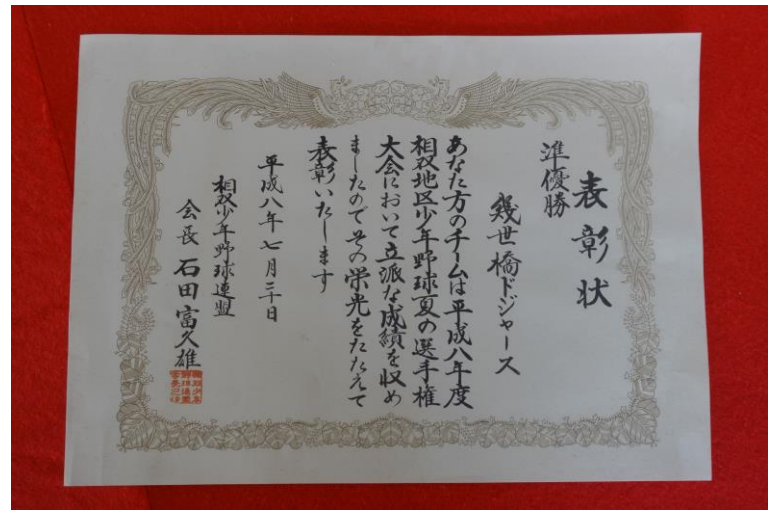 表彰状
準優勝
幾世橋ドジャース
あなた方のチームは平成八年度
相双地区少年野球夏の選手権
大会において立派な成績を収め
ましたのでその栄光をたたえて
表彰いたします
平成八年七月二十日
相双少年野球連盟
会長 石田富久雄